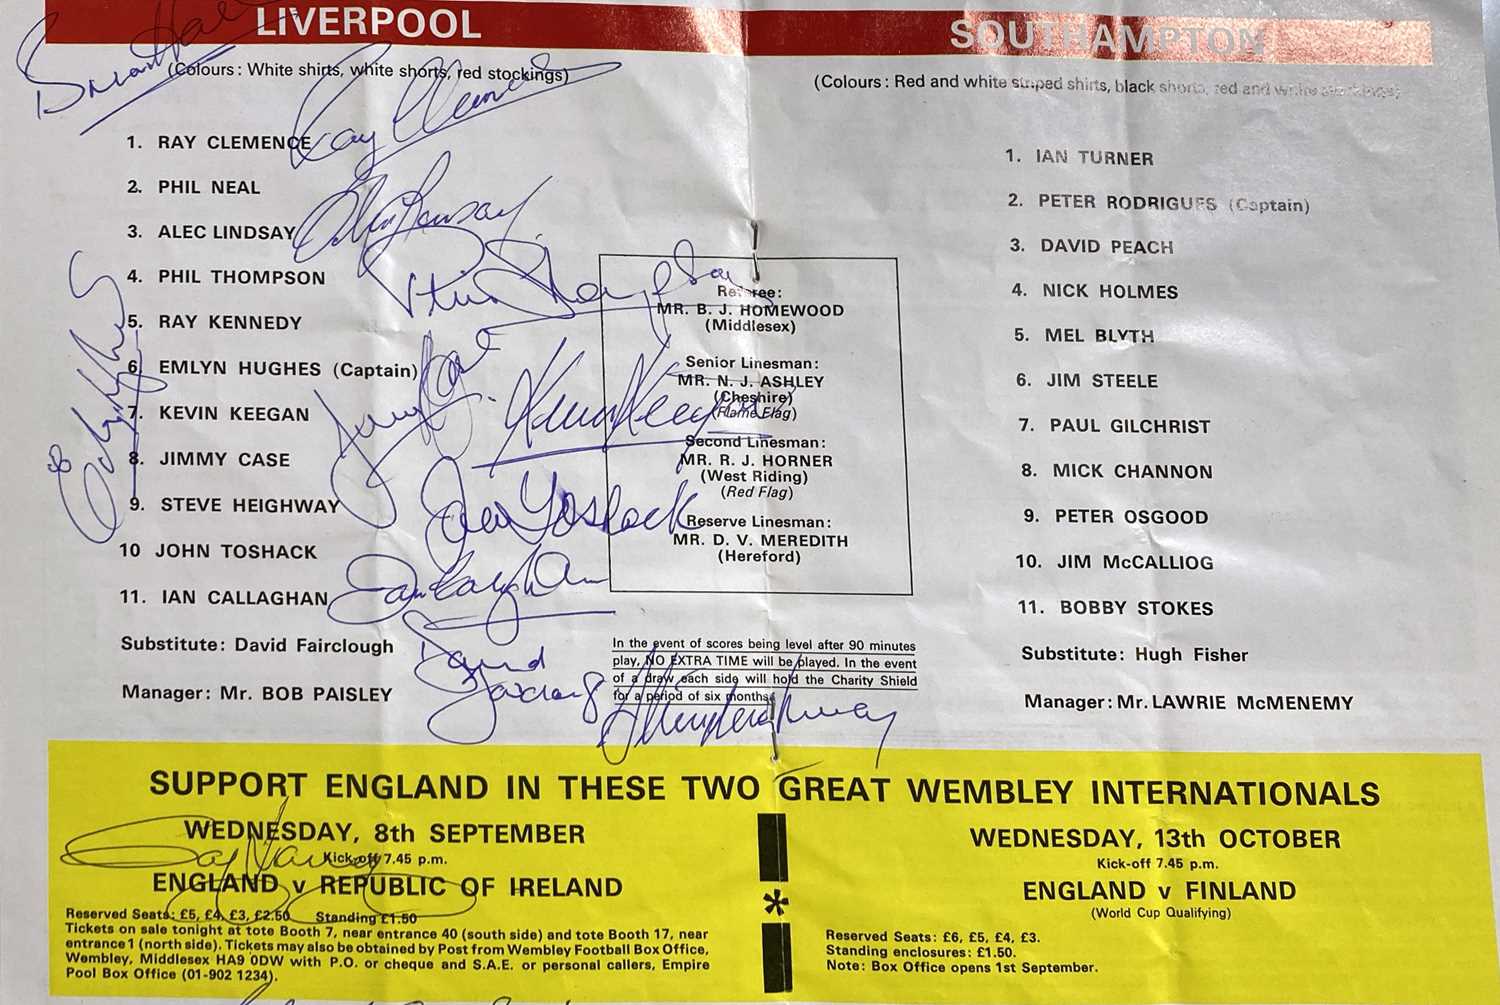 LIVERPOOL
(Colours: White shirts, white shorts, red stockings)
1. RAY CLEMENCE
2. PHIL NEAL
3. ALEC LINDSAY
4. PHIL THOMPSON
5. RAY KENNEDY
6. EMLYN HUGHES (Captain)
7. KEVIN KEEGAN
8. JIMMY CASE
9. STEVE HEIGHWAY
10 JOHN TOSHACK
11. IAN CALLAGHAN
Substitute: David Fairclough
Manager: Mr. BOB PAISLEY
Ray Clemence
Phil Thompson
Kevin Keegan
John Toshack
Ian Callaghan
David
Referee:
MR. B. J. HOMEWOOD
(Middlesex)
Senior Linesman:
MR. N. J. ASHLEY
(Cheshire)
(Flame Flag)
Second Linesman:
MR. R. J. HORNER
(West Riding)
(Red Flag)
Reserve Linesman:
MR. D. V. MEREDITH
(Hereford)
In the event of scores being level after 90 minutes
play, NO EXTRA TIME will be played. In the event
of a draw each side will hold the Charity Shield
for a period of six months.
SOUTHAMPTON
(Colours: Red and white striped shirts, black shorts, red and white stockings)
1. IAN TURNER
2. PETER RODRIGUES (Captain)
3. DAVID PEACH
4. NICK HOLMES
5. MEL BLYTH
6. JIM STEELE
7. PAUL GILCHRIST
8. MICK CHANNON
9. PETER OSGOOD
10. JIM McCALLIOG
11. BOBBY STOKES
Substitute: Hugh Fisher
Manager: Mr. LAWRIE McMENEMY
SUPPORT ENGLAND IN THESE TWO GREAT WEMBLEY INTERNATIONALS
WEDNESDAY, 8th SEPTEMBER
Kick-off 7.45 p.m.
ENGLAND v REPUBLIC OF IRELAND
Reserved Seats: £5, £4, £3, £2.50 Standing £1.50
Tickets on sale tonight at tote Booth 7, near entrance 40 (south side) and tote Booth 17, near
entrance 1 (north side). Tickets may also be obtained by Post from Wembley Football Box Office,
Wembley, Middlesex HA9 0DW with P.O. or cheque and S.A.E. or personal callers, Empire
Pool Box Office (01-902 1234).
*
WEDNESDAY, 13th OCTOBER
Kick-off 7.45 p.m.
ENGLAND v FINLAND
(World Cup Qualifying)
Reserved Seats: £6, £5, £4, £3.
Standing enclosures: £1.50.
Note: Box Office opens 1st September.